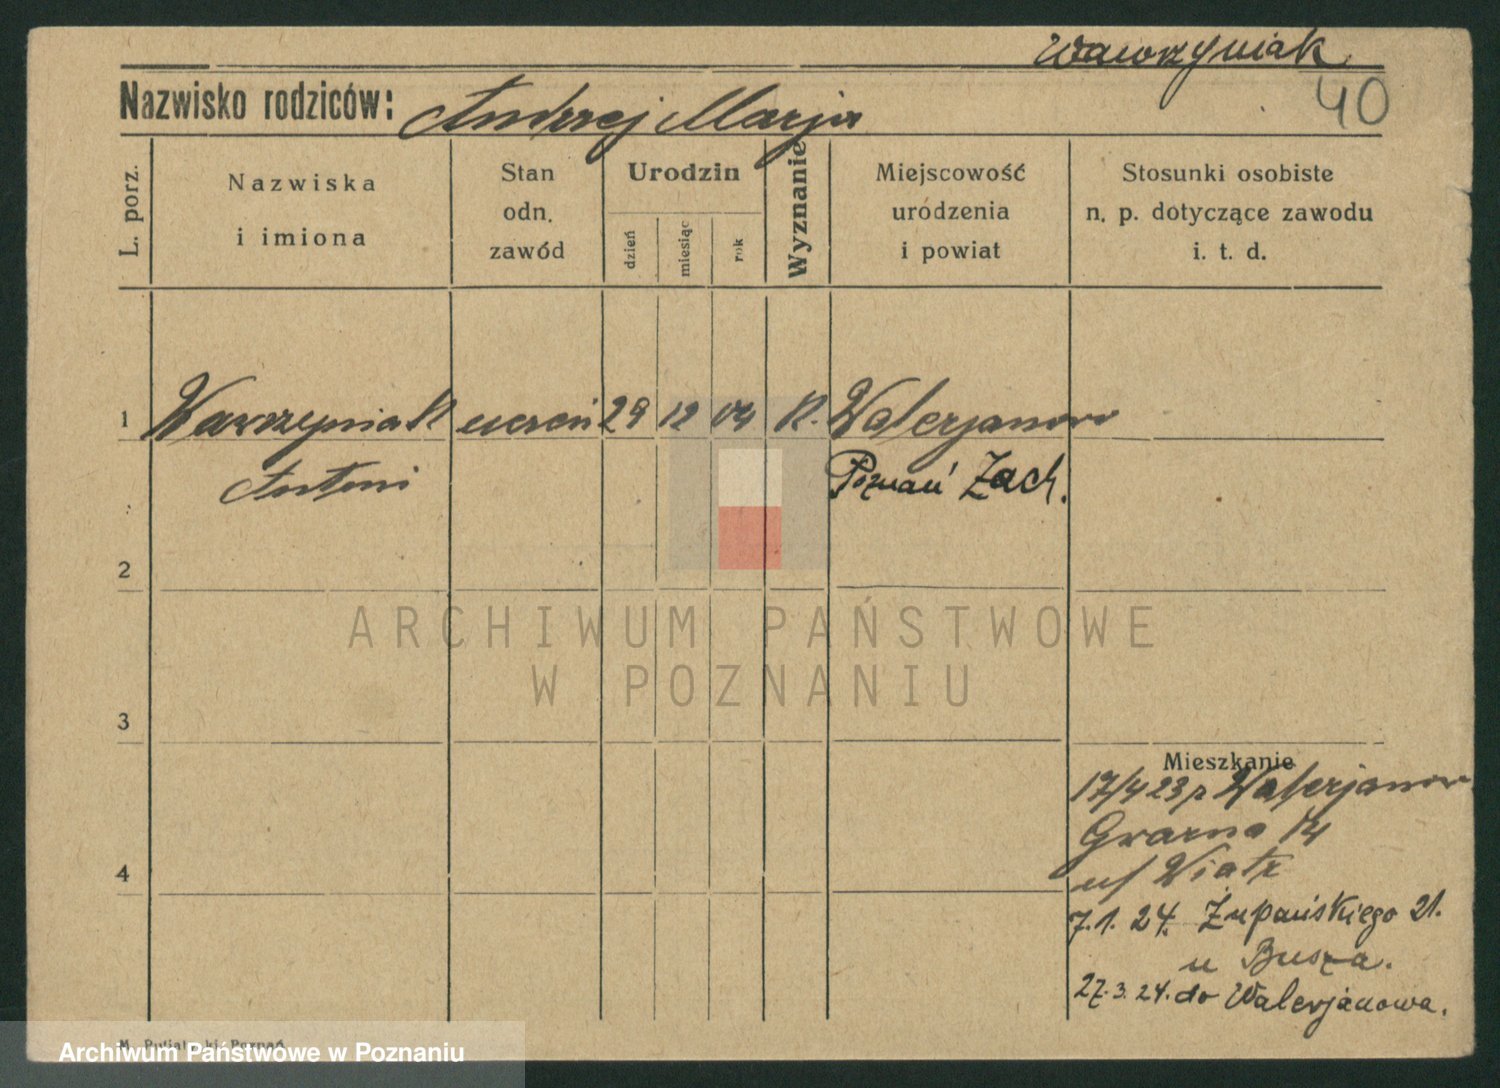 Wawrzyniak
40
Nazwisko rodziców: Andrzej Marja
L. porz.
Nazwiska
i imiona
Stan
odn.
zawód
Urodzin
dzień
miesiąc
rok
Wyznanie
Miejscowość
uródzenia
i powiat
Stosunki osobiste
n. p. dotyczące zawodu
i. t. d.
1 Wawrzyniak uczeń 29 12 04 K. Walerjanowo
Antoni Poznań Zach.
2
ARCHIWUM PAŃSTWOWE
W POZNANIU
3
Mieszkanie
17/4 23 z Walerjanow
Gwarna 14
u/ Wiatr
4
7.1.24. Żupańskiego 21.
u Busza.
27.3.24. do Walerjanowa.
M. Putiatycki, Poznań
Archiwum Państwowe w Poznaniu